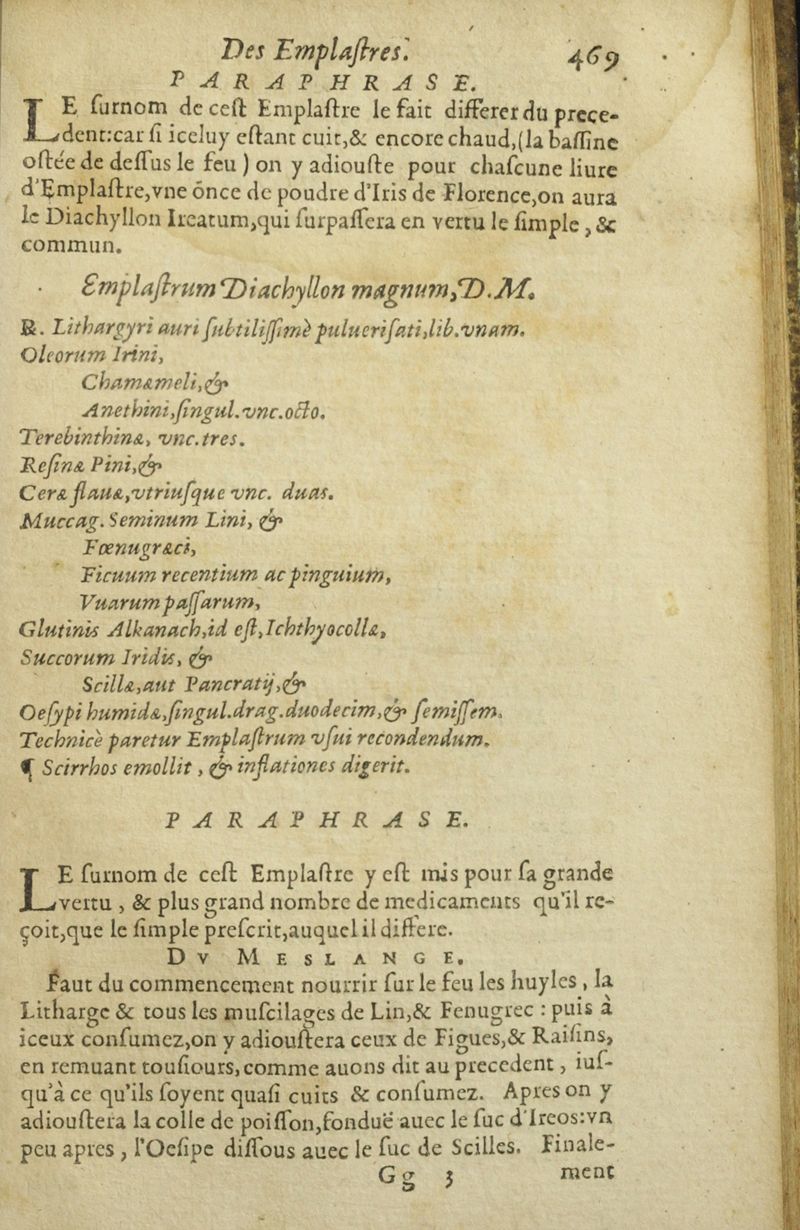 Des Emplaſtres. 469
PARAPHRASE.
LE ſurnom de ceſt Emplaſtre le fait differer du prece-
dent:car ſi iceluy eſtant cuit,& encore chaud,(la baſſine
oſtée de deſſus le feu) on y adiouſte pour chaſcune liure
d'Emplaſtre,vne önce de poudre d'Iris de Florence,on aura
le Diachyllon Ireatum,qui ſurpaſſera en vertu le ſimple, &
commun.
Emplaſtrum Diachyllon magnum, D.M.
℞. Lithargyri auri ſubtiliſſimè pulueriſati,lib.vnam.
Oleorum Irini,
Chamæmeli,&
Anethini,ſingul.vnc.octo.
Terebinthinæ, vnc.tres.
Reſinæ Pini,&
Ceræ flauæ,vtriuſque vnc. duas.
Muccag. Seminum Lini, &
Fœnugræci,
Ficuum recentium ac pinguium,
Vuarum paſſarum,
Glutinis Alkanach,id eſt,Ichthyocollæ,
Succorum Iridis, &
Scillæ,aut Pancratij,&
Oeſypi humidæ,ſingul.drag.duodecim,& ſemiſſem.
Technicè paretur Emplaſtrum vſui recondendum.
¶ Scirrhos emollit, & inflationes digerit.
PARAPHRASE.
LE ſurnom de ceſt Emplaſtre y eſt mis pour ſa grande
vertu, & plus grand nombre de medicaments qu'il re-
çoit,que le ſimple preſcrit,auquel il differe.
DV MESLANGE.
Faut du commencement nourrir ſur le feu les huyles, la
Litharge & tous les muſcilages de Lin,& Fenugrec : puis à
iceux conſumez,on y adiouſtera ceux de Figues,& Raiſins,
en remuant touſiours,comme auons dit au precedent, iuſ-
qu'à ce qu'ils ſoyent quaſi cuits & conſumez. Apres on y
adiouſtera la colle de poiſſon,fonduë auec le ſuc d'Ireos:vn
peu apres, l'Oeſipe diſſous auec le ſuc de Scilles. Finale-
Gg 3 ment